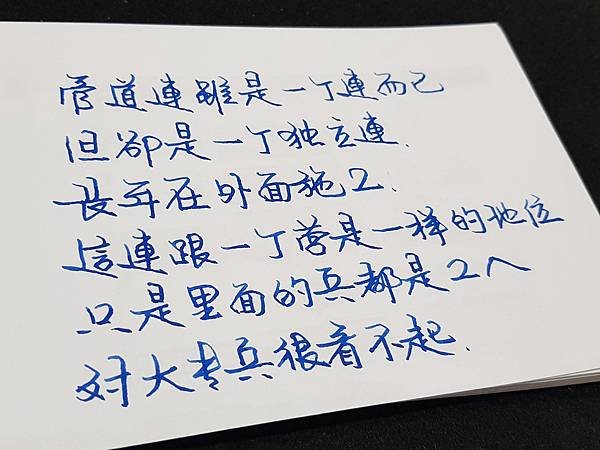 管道連雖是一丁連而已
但卻是一丁独立連.
長年在外面施工.
這連跟一丁营是一样的地位
只是里面的兵都是工人
对大专兵很看不起.